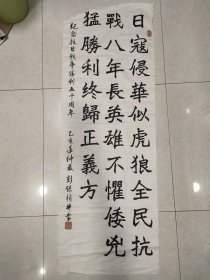 日寇侵華似虎狼全民抗
戰八年長英雄不懼倭兇
猛勝利終歸正義方
紀念抗日戰爭勝利五十周年
乙亥年仲春彭